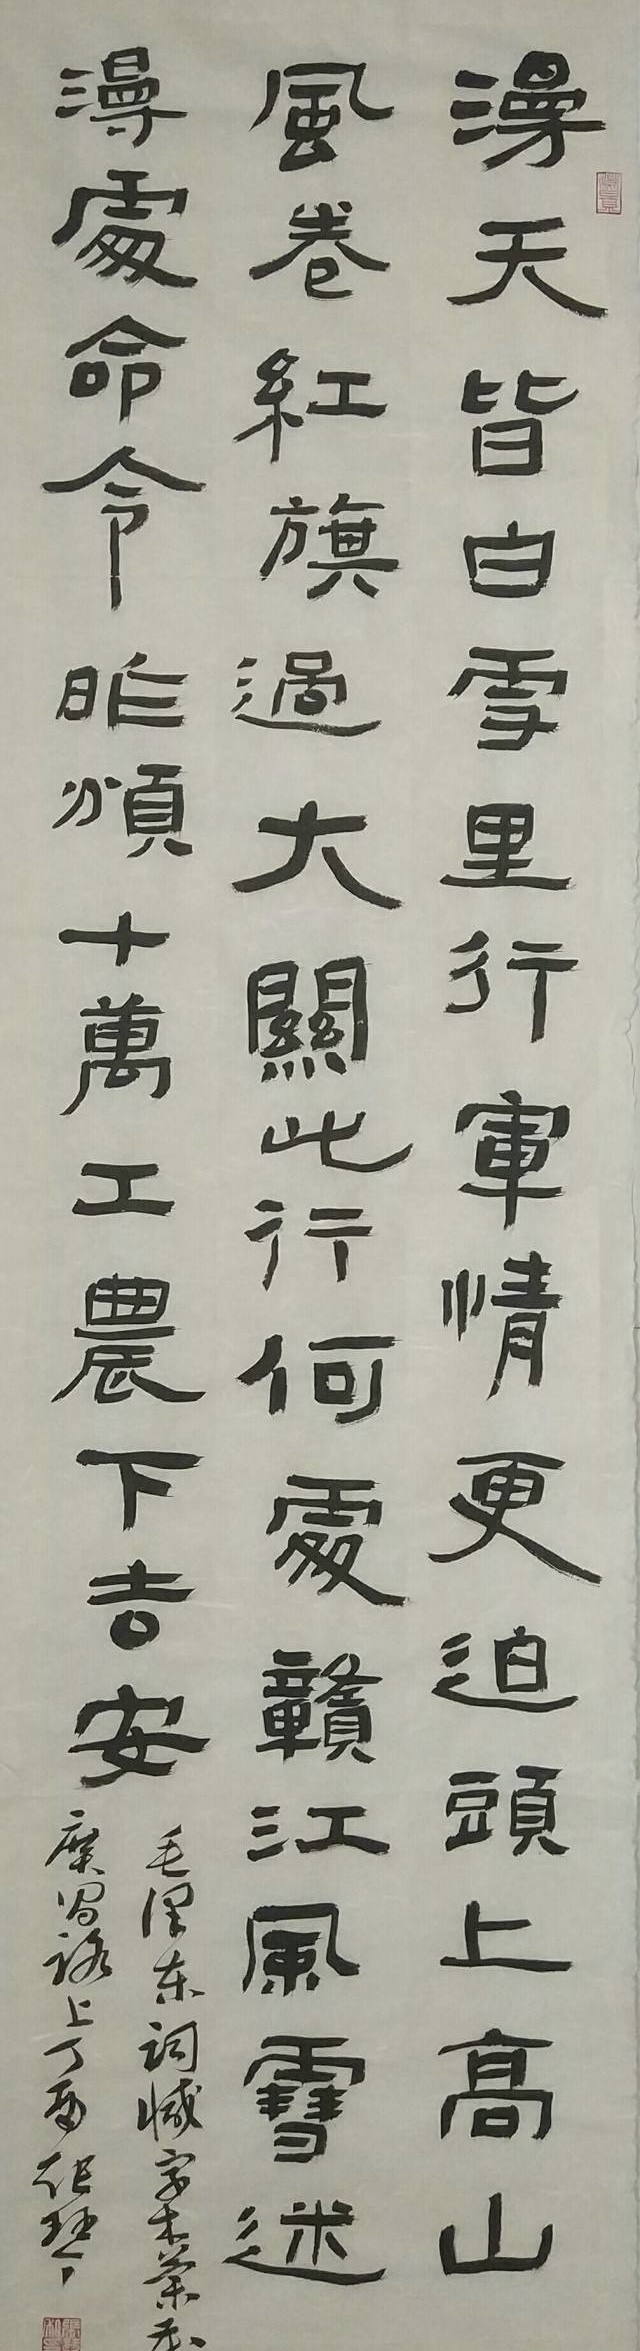 漫天皆白雪里行軍情更迫頭上高山
風卷紅旗過大關此行何處贛江風雪迷
漫處命令昨頒十萬工農下吉安
毛澤东詞減字木蘭花
廣昌路上丁酉